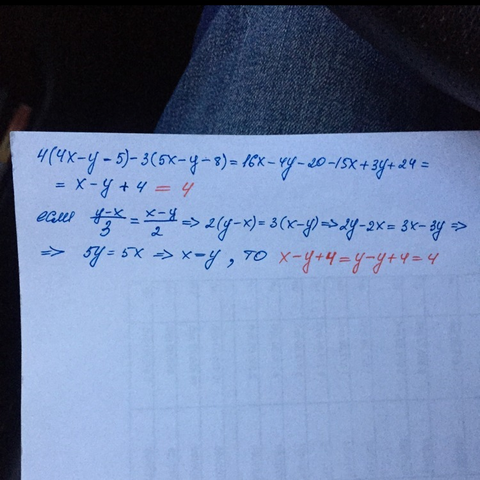 4(4x-y-5)-3(5x-y-8)=16x-4y-20-15x+3y+24=
= x-y+4 = 4
если (y-x)/3 = (x-y)/2 => 2(y-x)=3(x-y) => 2y-2x=3x-3y =>
=> 5y=5x => x=y, то x-y+4=y-y+4=4